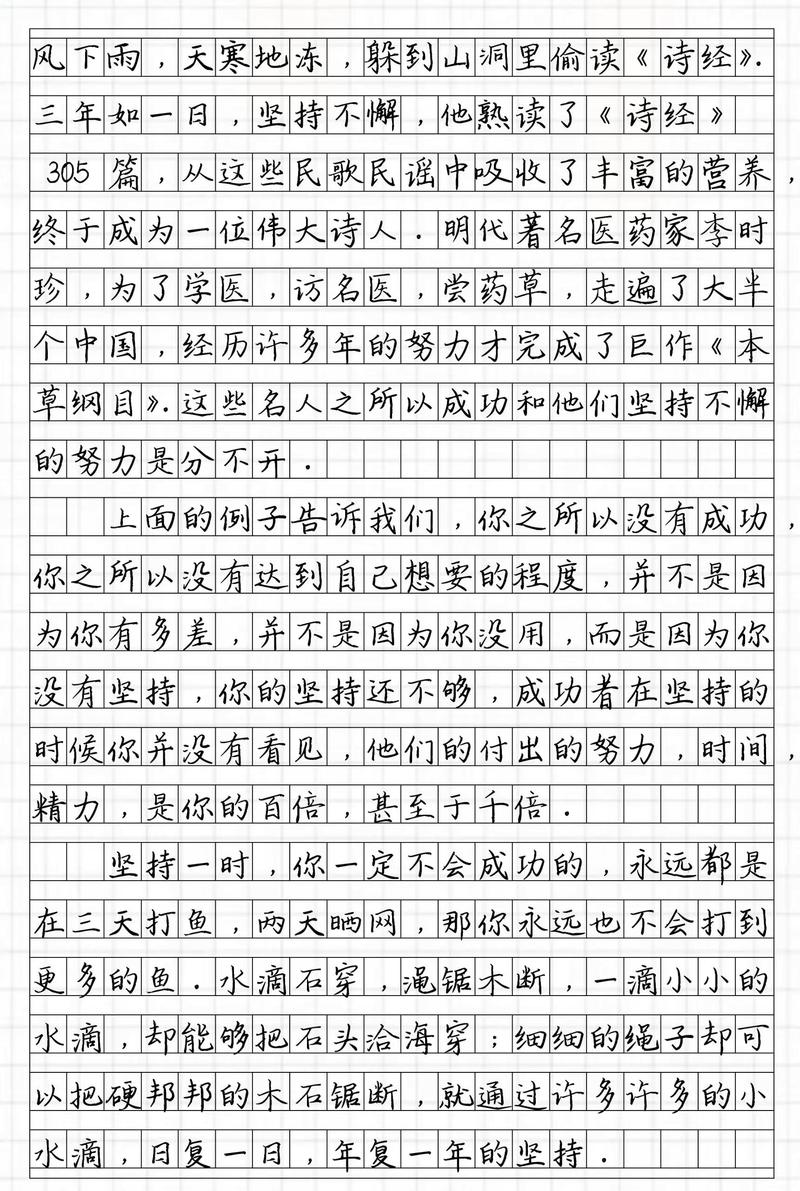 风下雨，天寒地冻，躲到山洞里偷读《诗经》.
三年如一日，坚持不懈，他熟读了《诗经》
305篇，从这些民歌民谣中吸收了丰富的营养，
终于成为一位伟大诗人．明代著名医药家李时
珍，为了学医，访名医，尝药草，走遍了大半
个中国，经历许多年的努力才完成了巨作《本
草纲目》.这些名人之所以成功和他们坚持不懈
的努力是分不开．
上面的例子告诉我们，你之所以没有成功，
你之所以没有达到自己想要的程度，并不是因
为你有多差，并不是因为你没用，而是因为你
没有坚持，你的坚持还不够，成功者在坚持的
时候你并没有看见，他们的付出的努力，时间，
精力，是你的百倍，甚至于千倍．
坚持一时，你一定不会成功的，永远都是
在三天打鱼，两天晒网，那你永远也不会打到
更多的鱼．水滴石穿，渑锯木断，一滴小小的
水滴，却能够把石头洽海穿；细细的绳子却可
以把硬邦邦的木石锯断，就通过许多许多的小
水滴，日复一日，年复一年的坚持．